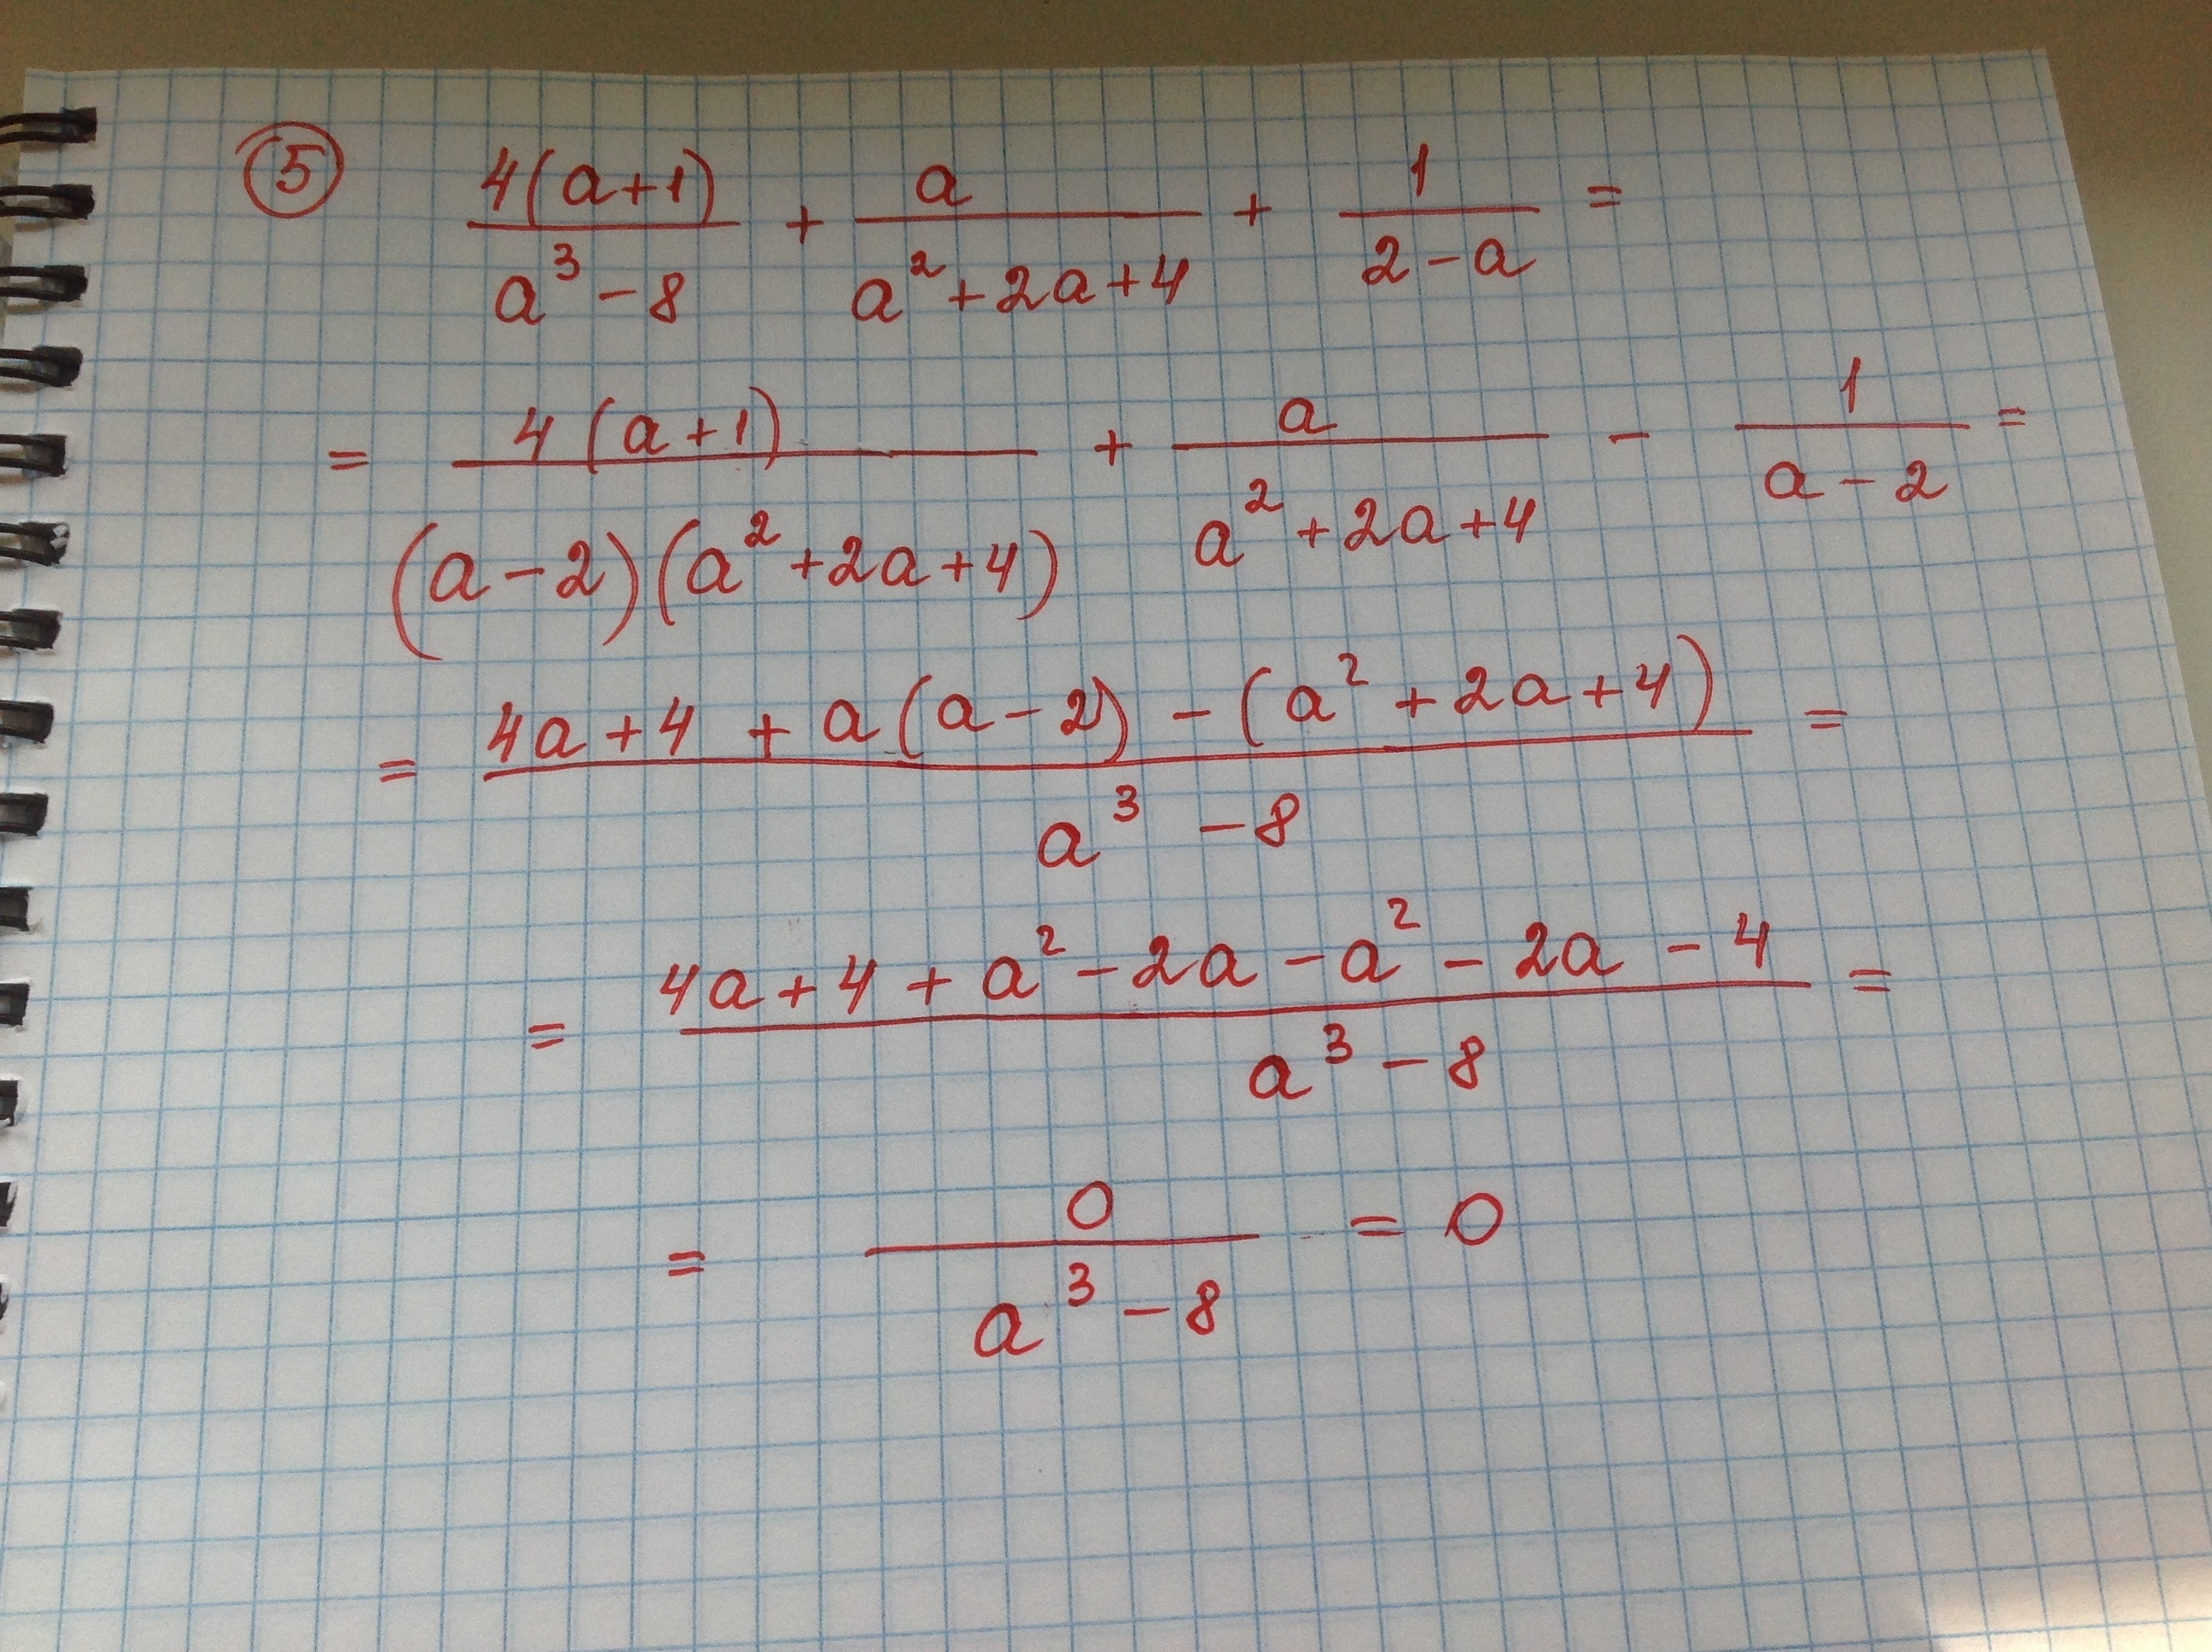 ⑤ \frac{4(a+1)}{a^3-8} + \frac{a}{a^2+2a+4} + \frac{1}{2-a} =
= \frac{4(a+1)}{(a-2)(a^2+2a+4)} + \frac{a}{a^2+2a+4} - \frac{1}{a-2} =
= \frac{4a+4+a(a-2)-(a^2+2a+4)}{a^3-8} =
= \frac{4a+4+a^2-2a-a^2-2a-4}{a^3-8} =
= \frac{0}{a^3-8} = 0